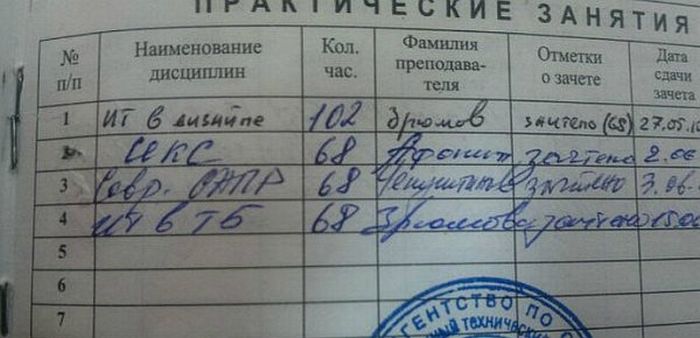 ПРАКТИЧЕСКИЕ ЗАНЯТИЯ
№ п/п Наименование дисциплин Кол. час. Фамилия преподава-теля Отметки о зачете Дата сдачи зачета
1 ИТ в дизайне 102 Зрюмов зачтено (68) 27.05.
ИКС 68 Афонин зачтено 2.06
3 Совр. САПР 68 зачтено 3.06.
4 ИТ в ТБ 68 Зрюмова зачтено 15.0
5
6
7
ГЕНТСТВО ПО
НЫЙ ТЕХНИЧЕСКИ